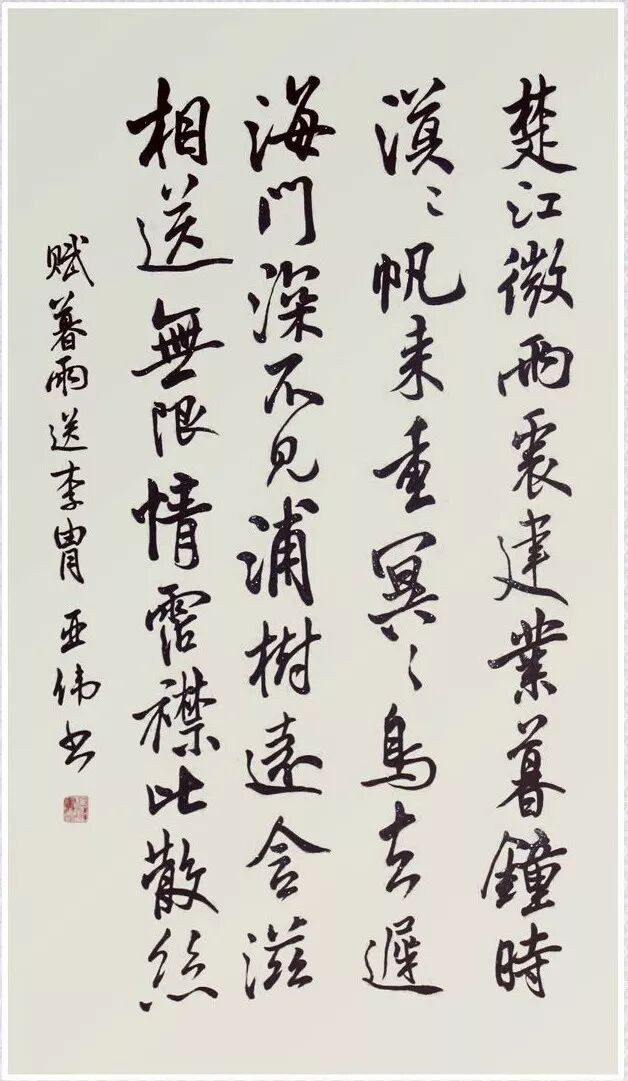 楚江微雨裏建業暮鐘時
漠〻帆来重冥〻鳥去遲
海門深不見浦樹遠含滋
相送無限情霑襟比散絲
赋暮雨送李胄 亚伟书